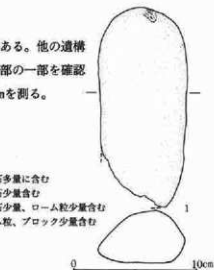 ある。他の遺構
部の一部を確認
mを測る。
多量に含む
少量含む
少量、ローム粒少量含む
粒、ブロック少量含む
1
0 10cm